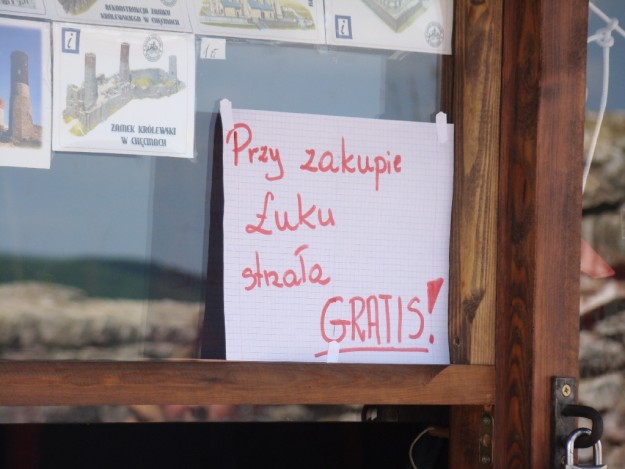 REKONSTRUKCJA ZAMKU
KRÓLEWSKIEGO W CHĘCINACH
i
i
ZAMEK KRÓLEWSKI
W CHĘCINACH
Przy zakupie
Łuku
strzała
GRATIS!